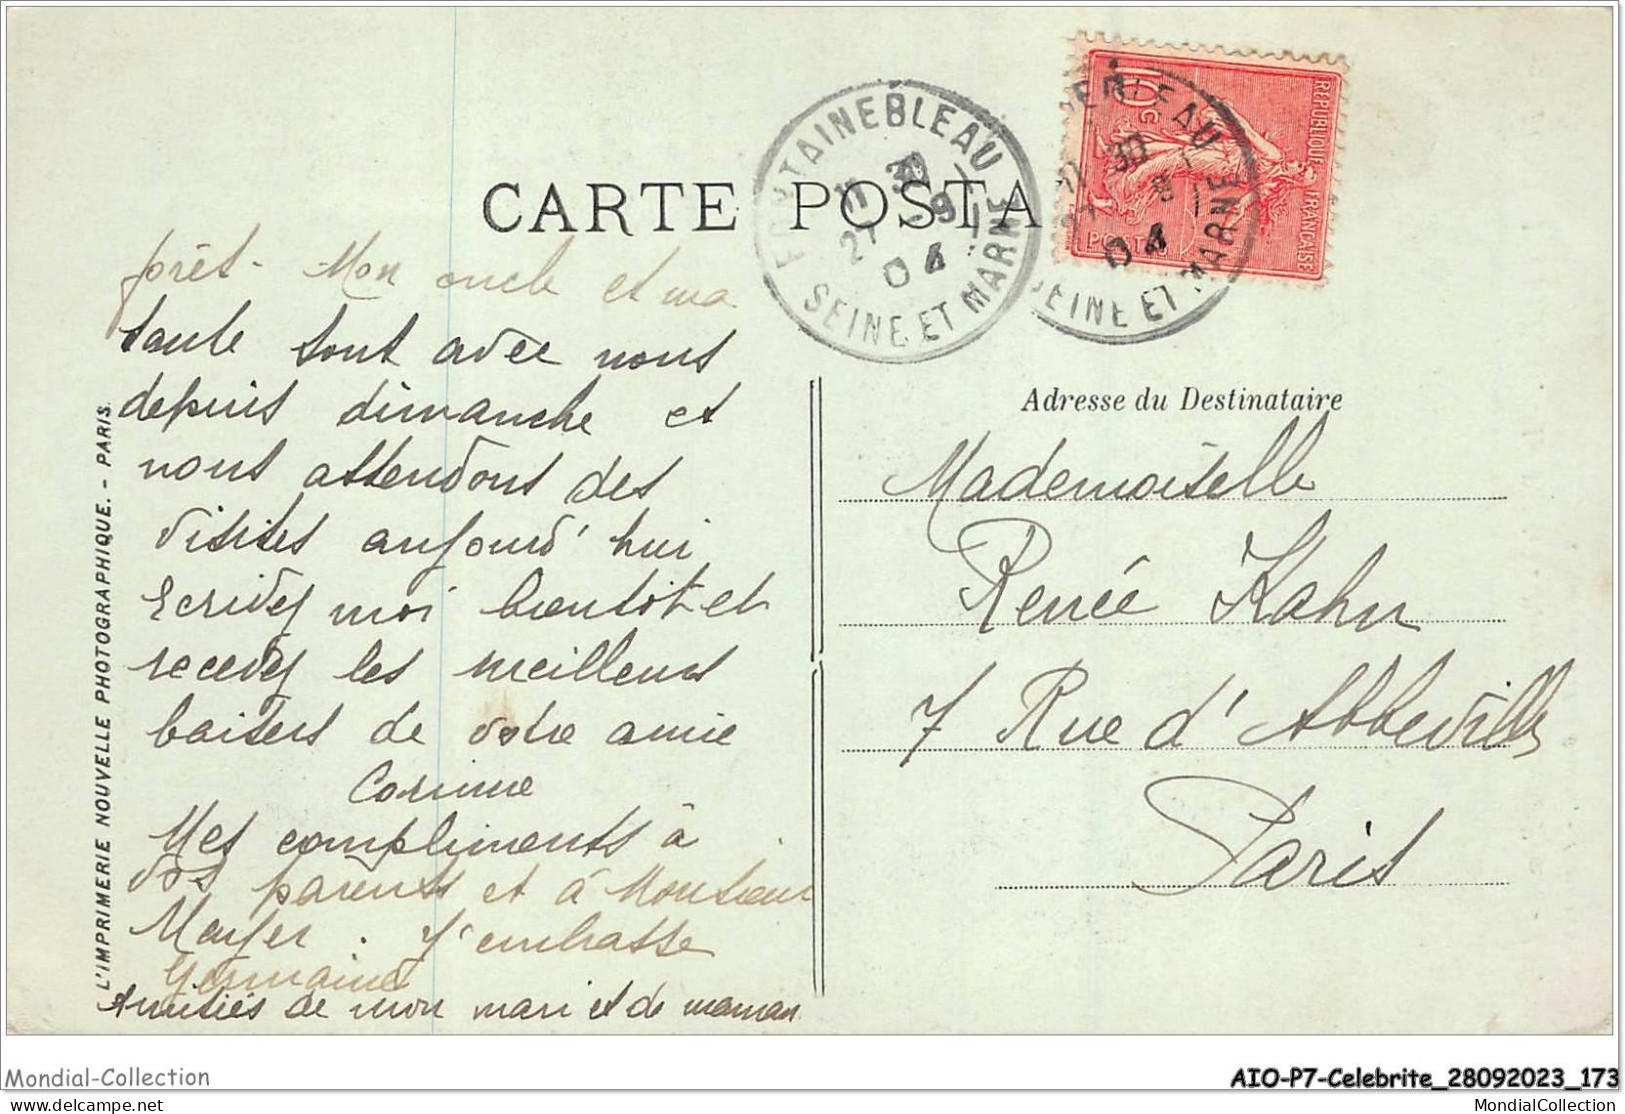 CARTE POSTA
REPUBLIQUE FRANCAISE
10 c
POSTES
FONTAINEBLEAU
11 30
27 -9
04
SEINE ET MARNE
ERLEAU
30
27 9
04
SEINE ET MARNE
prêt - Mon oncle et ma
tante sont avec nous
depuis dimanche et
nous attendons des
visites aujourd'hui
Ecrivez moi bientôt et
recevez les meilleurs
baisers de votre amie
Corinne
Mes compliments à
vos parents et à Monsieur
Mayer. J'embrasse
Germaine
Amitiés de mon mari et de maman
Adresse du Destinataire
Mademoiselle
Renée Kahn
7 Rue d'Abbeville
Paris
L'IMPRIMERIE NOUVELLE PHOTOGRAPHIQUE. - PARIS.
Mondial-Collection
AIO-P7-Celebrite_28092023_173
delcampe.net
MondialCollection